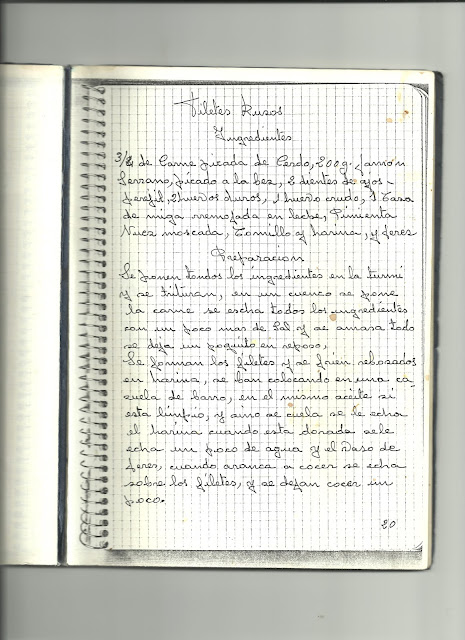 Filetes Rusos
Ingredientes
3/4 de Carne picada de Cerdo, 200g. jamon
Serrano, picado a la bez, 2 dientes de ajos
perefil, 2 huevos duros, 1 huevo crudo, 1 Tasa
de miga rremojada en leche, Pimienta
Nuez moscada, Tomillo y harina, y jerez
Preparacion
Se ponen tondos los ingredientes en la turmi
y se trituran, en un cuenco se pone
la carne se escha todos los ingredientes
con un poco mas de Sal y se amasa todo
se deja un poquito en reposo,
Se forman los filetes y se frien rebosados
en harina, se ban colocando en una ca
zuela de barro, en el mismo aceite si
esta limpio, y sino se cuela se le echa
el harina cuando esta dorada sele
echa un poco de agua y el vaso de
jeres, cuando aranca a cocer se echa
sobre los filetes, y se dejan cocer un
poco.
20